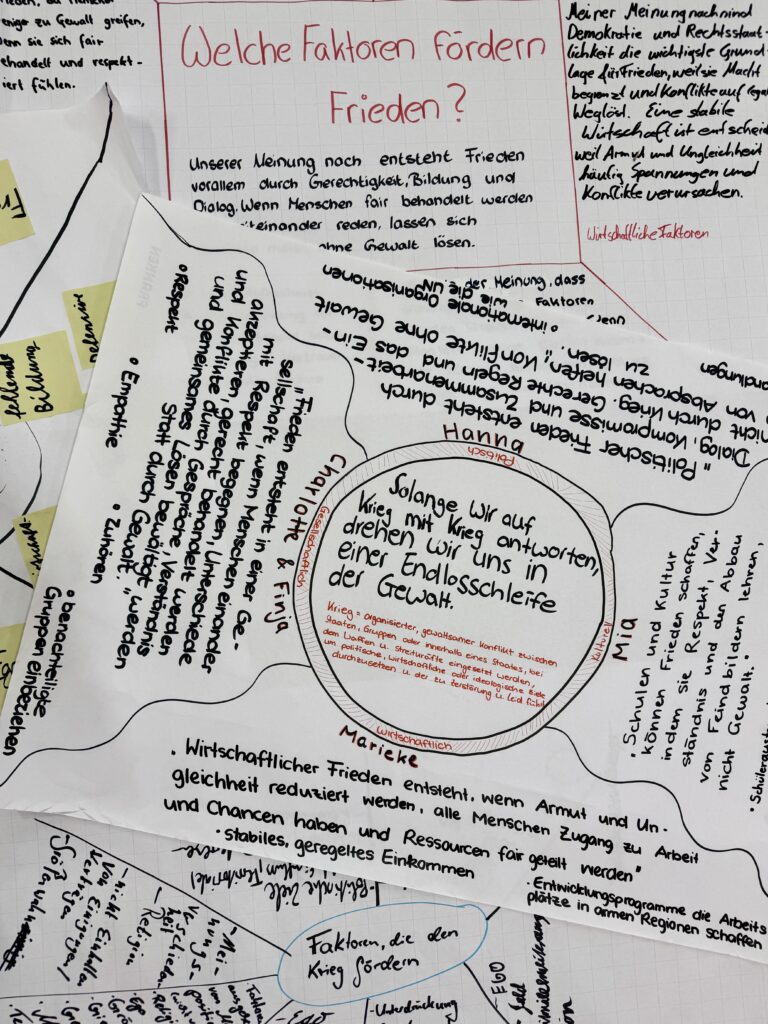 eniger zu Gewalt greifen,
enn sie sich fair
ehandelt und respekt-
iert fühlen.
Welche Faktoren fördern
Frieden?
Unserer Meinung nach entsteht Frieden
vorallem durch Gerechtigkeit, Bildung und
Dialog. Wenn Menschen fair behandelt werden
teinander reden, lassen sich
ohne Gewalt lösen.
Meiner Meinung nach sind
Demokratie und Rechtsstaat-
lichkeit die wichtigste Grund-
lage für Frieden, weil sie Macht
begrenzt und Konflikte auf
Weg löst. Eine stabile
Wirtschaft ist entscheid
weil Armut und Ungleichheit
häufig Spannungen und
Konflikte verursachen.
Wirtschaftliche Faktoren
der Meinung, dass
Faktoren
• internationale Organisationen
wie die UN
"Politischer Frieden entsteht durch
Dialog, Kompromisse und Zusammenarbeit-
nicht durch Krieg. Gerechte Regeln und das Ein-
von Absprachen helfen, Konflikte ohne Gewalt
zu lösen."
Hanna
Politisch
"Frieden entsteht in einer Ge-
sellschaft, wenn Menschen einander
mit Respekt begegnen, Unterschiede
akzeptieren, gerecht behandelt werden
und Konflikte durch Gespräche, Verständnis
und gemeinsames Lösen bewältigt werden
Statt durch Gewalt."
• Respekt
• Empathie
• Zuhören
• benachteiligte
Gruppen einbeziehen
Charlotte & Finja
Gesellschaftlich
Solange wir auf
Krieg mit Krieg antworten,
drehen wir uns in
einer Endlosschleife
der Gewalt.
Krieg = organisierter, gewaltsamer Konflikt zwischen
Staaten, Gruppen oder innerhalb eines Staates, bei
dem Waffen u. Streitkräfte eingesetzt werden,
um politische, wirtschaftliche oder ideologische Ziele
durchzusetzen u. der zu Zerstörung u. Leid führt
Kulturell
Mia
• Schulen und Kultur
können Frieden schaffen,
indem sie Respekt, Ver-
ständnis und den Abbau
von Feindbildern lehren,
nicht Gewalt."
Wirtschaftlich
Marieke
• Wirtschaftlicher Frieden entsteht, wenn Armut und Un-
gleichheit reduziert werden, alle Menschen Zugang zu Arbeit
und Chancen haben und Ressourcen fair geteilt werden"
• stabiles, geregeltes Einkommen
• Entwicklungsprogramme die Arbeits
plätze in armen Regionen schaffen
Bildung
Faktoren, die den
Krieg fördern
- Politische Ziele
- nicht Einhalten
von Einigungen/
Verträgen
- Religion
- Unterdrückung
- EGO
- Geld